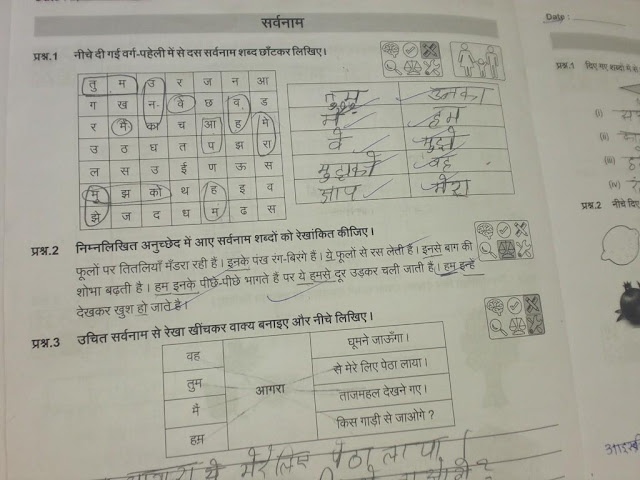 सर्वनाम
प्रश्न.1 नीचे दी गई वर्ग-पहेली में से दस सर्वनाम शब्द छाँटकर लिखिए।
तु म उ र ज न आ
ग ख न वे छ व ड
र मैं का च आ ह मे
उ ठ ध त प झ रा
ल स उ ई ण ऊ स
मु झ को थ ह इ व
झे ज द घ म ढ स
तुम उनका
मैं हम
वे मुझे
मुझको वह
आप मेरा
प्रश्न.2 निम्नलिखित अनुच्छेद में आए सर्वनाम शब्दों को रेखांकित कीजिए।
फूलों पर तितलियाँ मँडरा रही हैं। इनके पंख रंग-बिरंगे हैं। ये फूलों से रस लेती हैं। इनसे बाग की
शोभा बढ़ती है। हम इनके पीछे-पीछे भागते हैं पर ये हमसे दूर उड़कर चली जाती हैं। हम इन्हें
देखकर खुश हो जाते हैं।
प्रश्न.3 उचित सर्वनाम से रेखा खींचकर वाक्य बनाइए और नीचे लिखिए।
वह
तुम
मैं
हम
आगरा
घूमने जाऊँगा।
से मेरे लिए पेठा लाया।
ताजमहल देखने गए।
किस गाड़ी से जाओगे ?
मेरे लिए पेठा लाया।
Date :
प्रश्न.1 दिए गए शब्दों में से
(i)
(ii)
(iii)
(iv)
प्रश्न.2 नीचे दिए